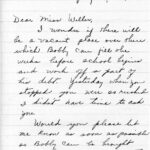 Dear Miss Weller,
I wonder if there will
be a vacant place over there
which Bobby can fill
before school begins
and work off a part of
his debt. Yesterday when you
stopped you were so rushed
I didn't have time to ask
you.
Would you please let
me know as soon as possible
so Bobby can be brought